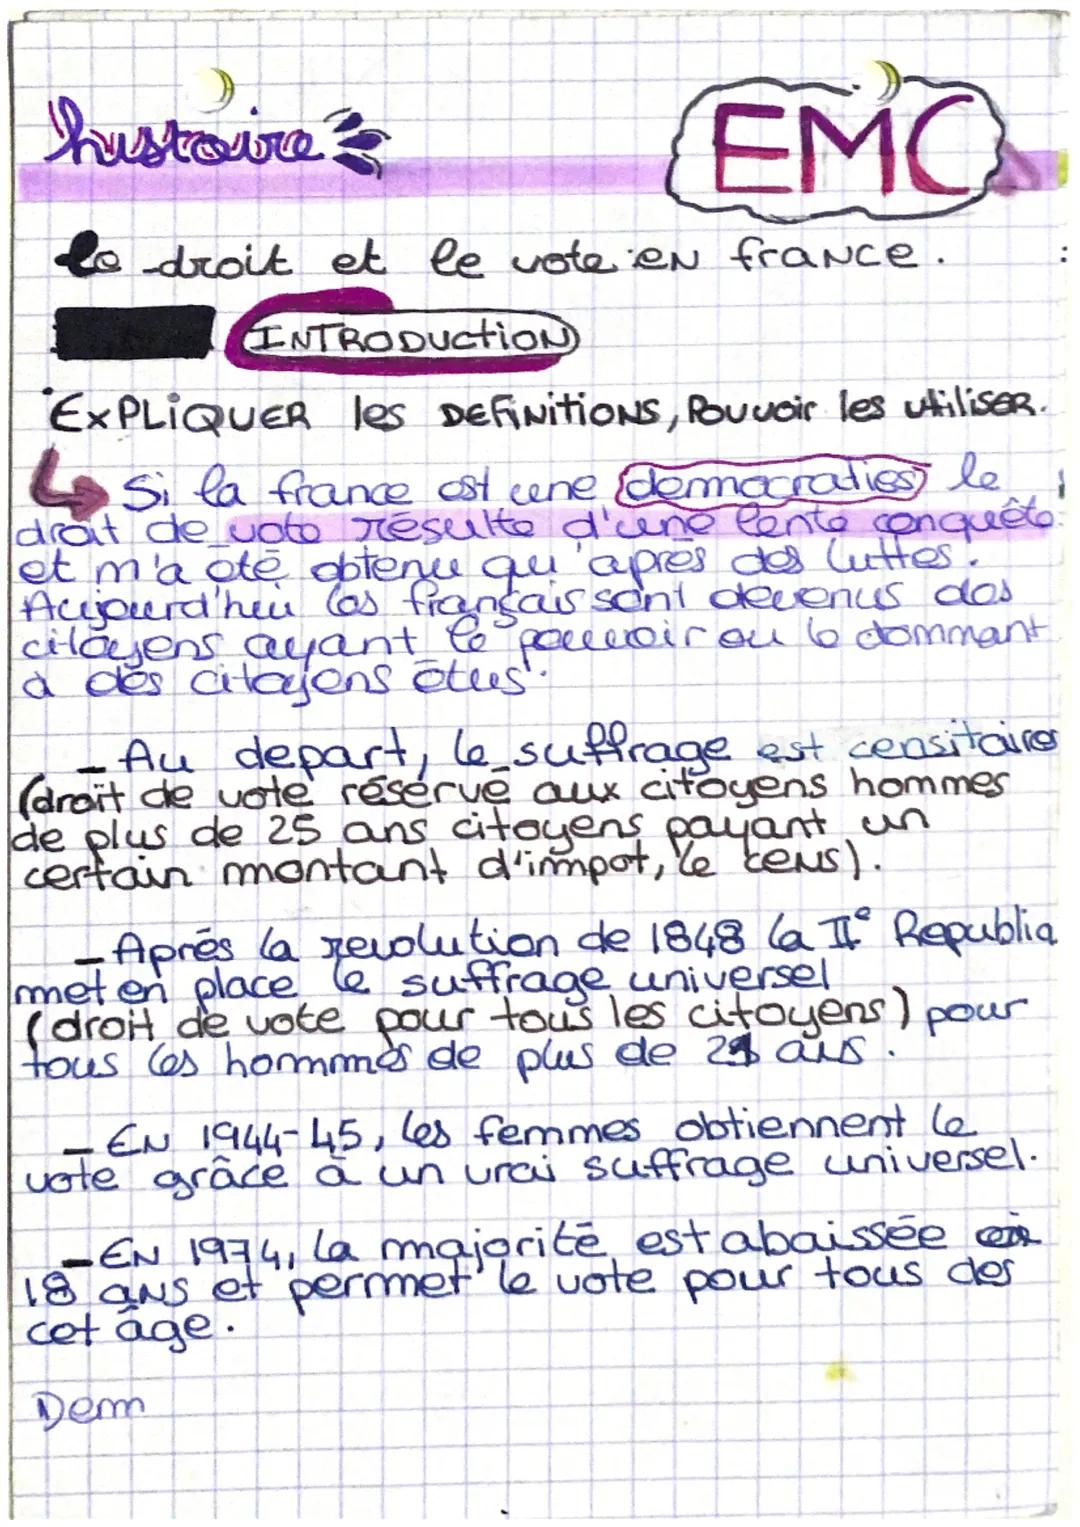 histoire
EMC
le droit et le vote en france.
INTRODUCTION
EXPLIQUER les DEFINITIONS, Pouvoir les utiliser.
Si la france est une democraties le
droit de vote résulte d'une lente conquête
et m'a été obtenu qu'après des luttes.
Aujourd'hui les français sont devenus des
citoyens ayant le pouvoir ou le dommant
à des citoyens élus.
- Au depart, le suffrage est censitaires
(droit de vote réservé aux citoyens hommes
de plus de 25 ans citoyens payant un
certain montant d'immpot, le cens).
- Aprés la revolution de 1848 la IIe Republia
met en place le suffrage universel
(droit de vote pour tous les citoyens) pour
tous les hommmes de plus de 21 ans.
- EN 1944-45, les femmes obtiennent le
vote grâce à un vrai suffrage universel.
- EN 1974, la majorité est abaissée
18 ans et permmet le vote pour tous des
cet âge.
Dem